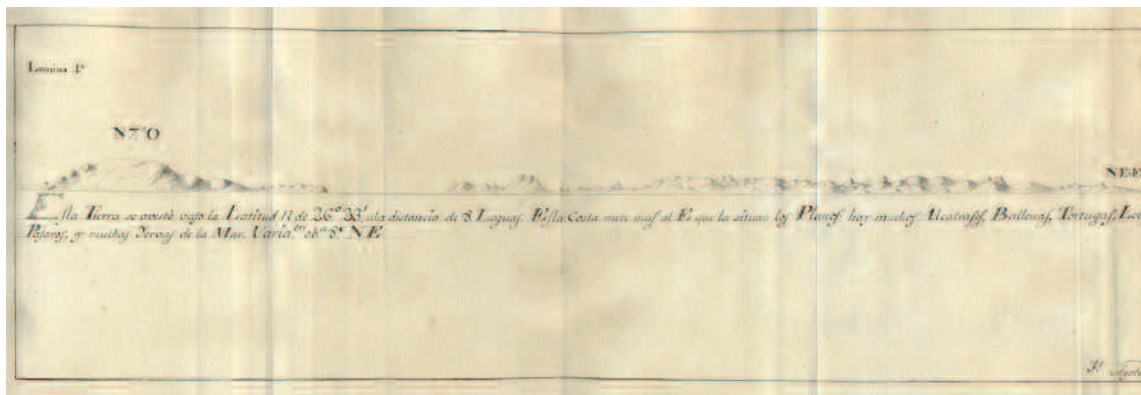 Lamina 4ª
N7º O
NE E
Esta Tierra se avistó vajo la Latitud N de 26º 33' ala distancia de 8 Leguas. Esta Costa mete mas al E que la situan los Planos hay muchos Alcatrases, Ballenas, Tortugas,
Pajaros, y muchas Yervas de la Mar. Varia.on ob.a NE